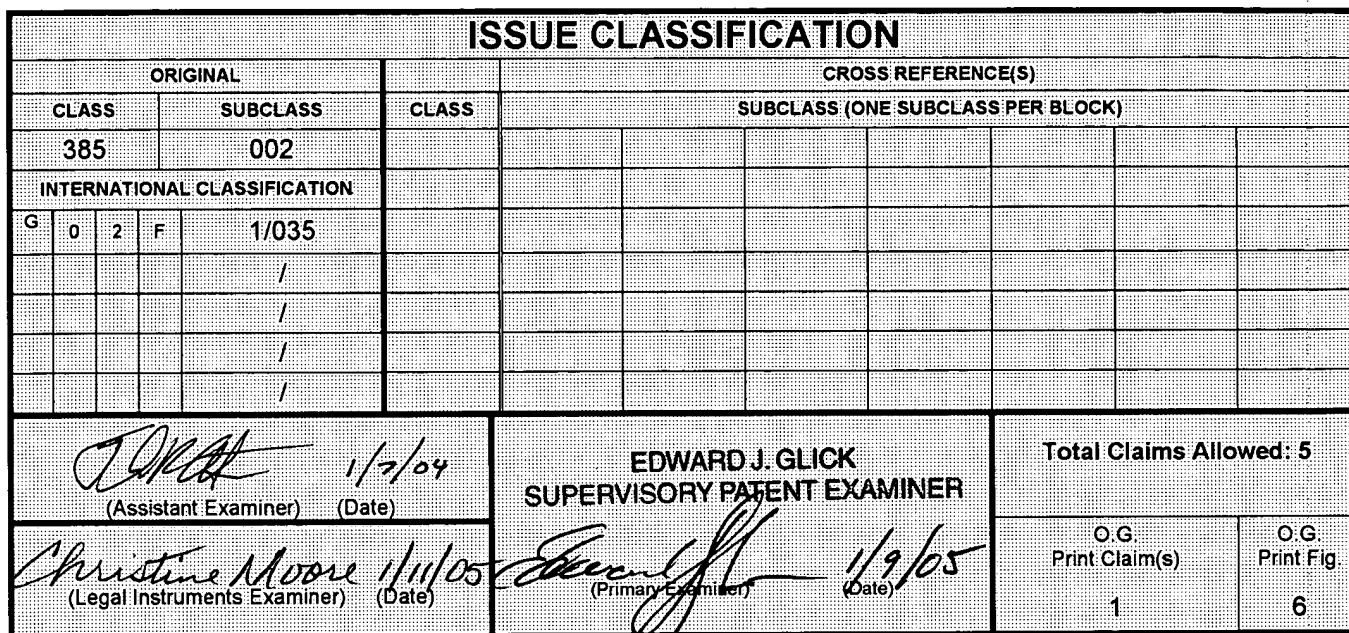 ISSUE CLASSIFICATION
ORIGINAL
CROSS REFERENCE(S)
CLASS
SUBCLASS
CLASS
SUBCLASS (ONE SUBCLASS PER BLOCK)
385
002
INTERNATIONAL CLASSIFICATION
G 0 2 F 1/035
/
/
/
/
1/7/04
(Assistant Examiner) (Date)
Christine Moore 1/11/05
(Legal Instruments Examiner) (Date)
EDWARD J. GLICK
SUPERVISORY PATENT EXAMINER
1/9/05
(Primary Examiner) (Date)
Total Claims Allowed: 5
O.G.
Print Claim(s)
1
O.G.
Print Fig.
6